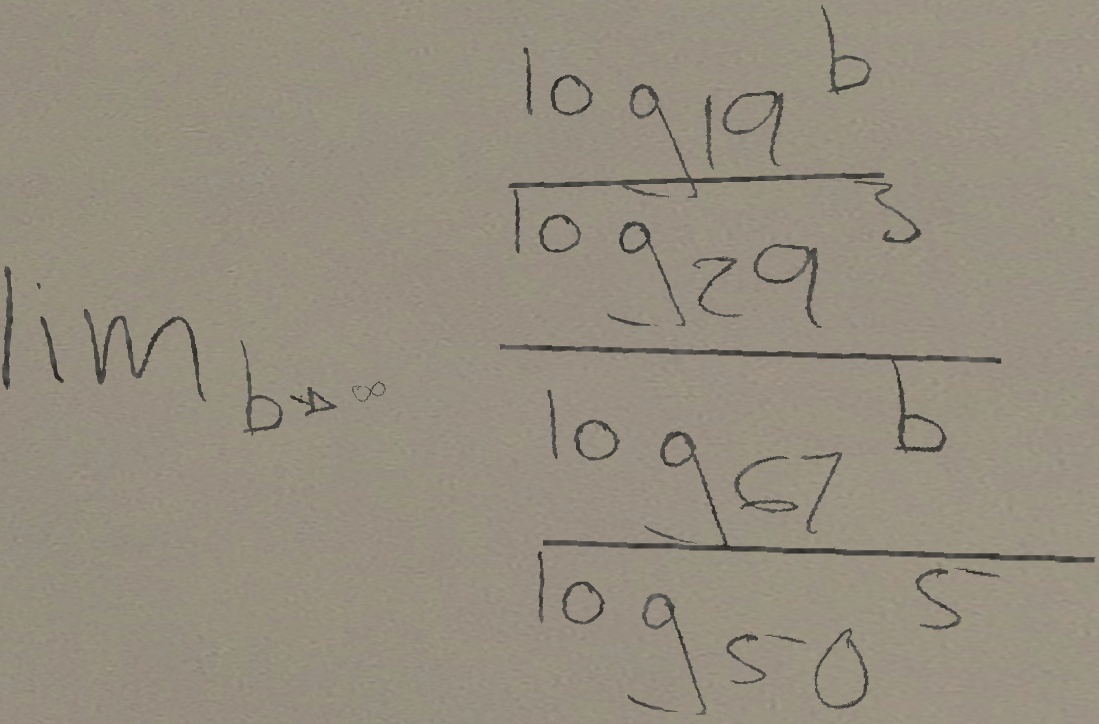 lim b→∞
log 19 b
log 29 3
log 67 b
log 50 5